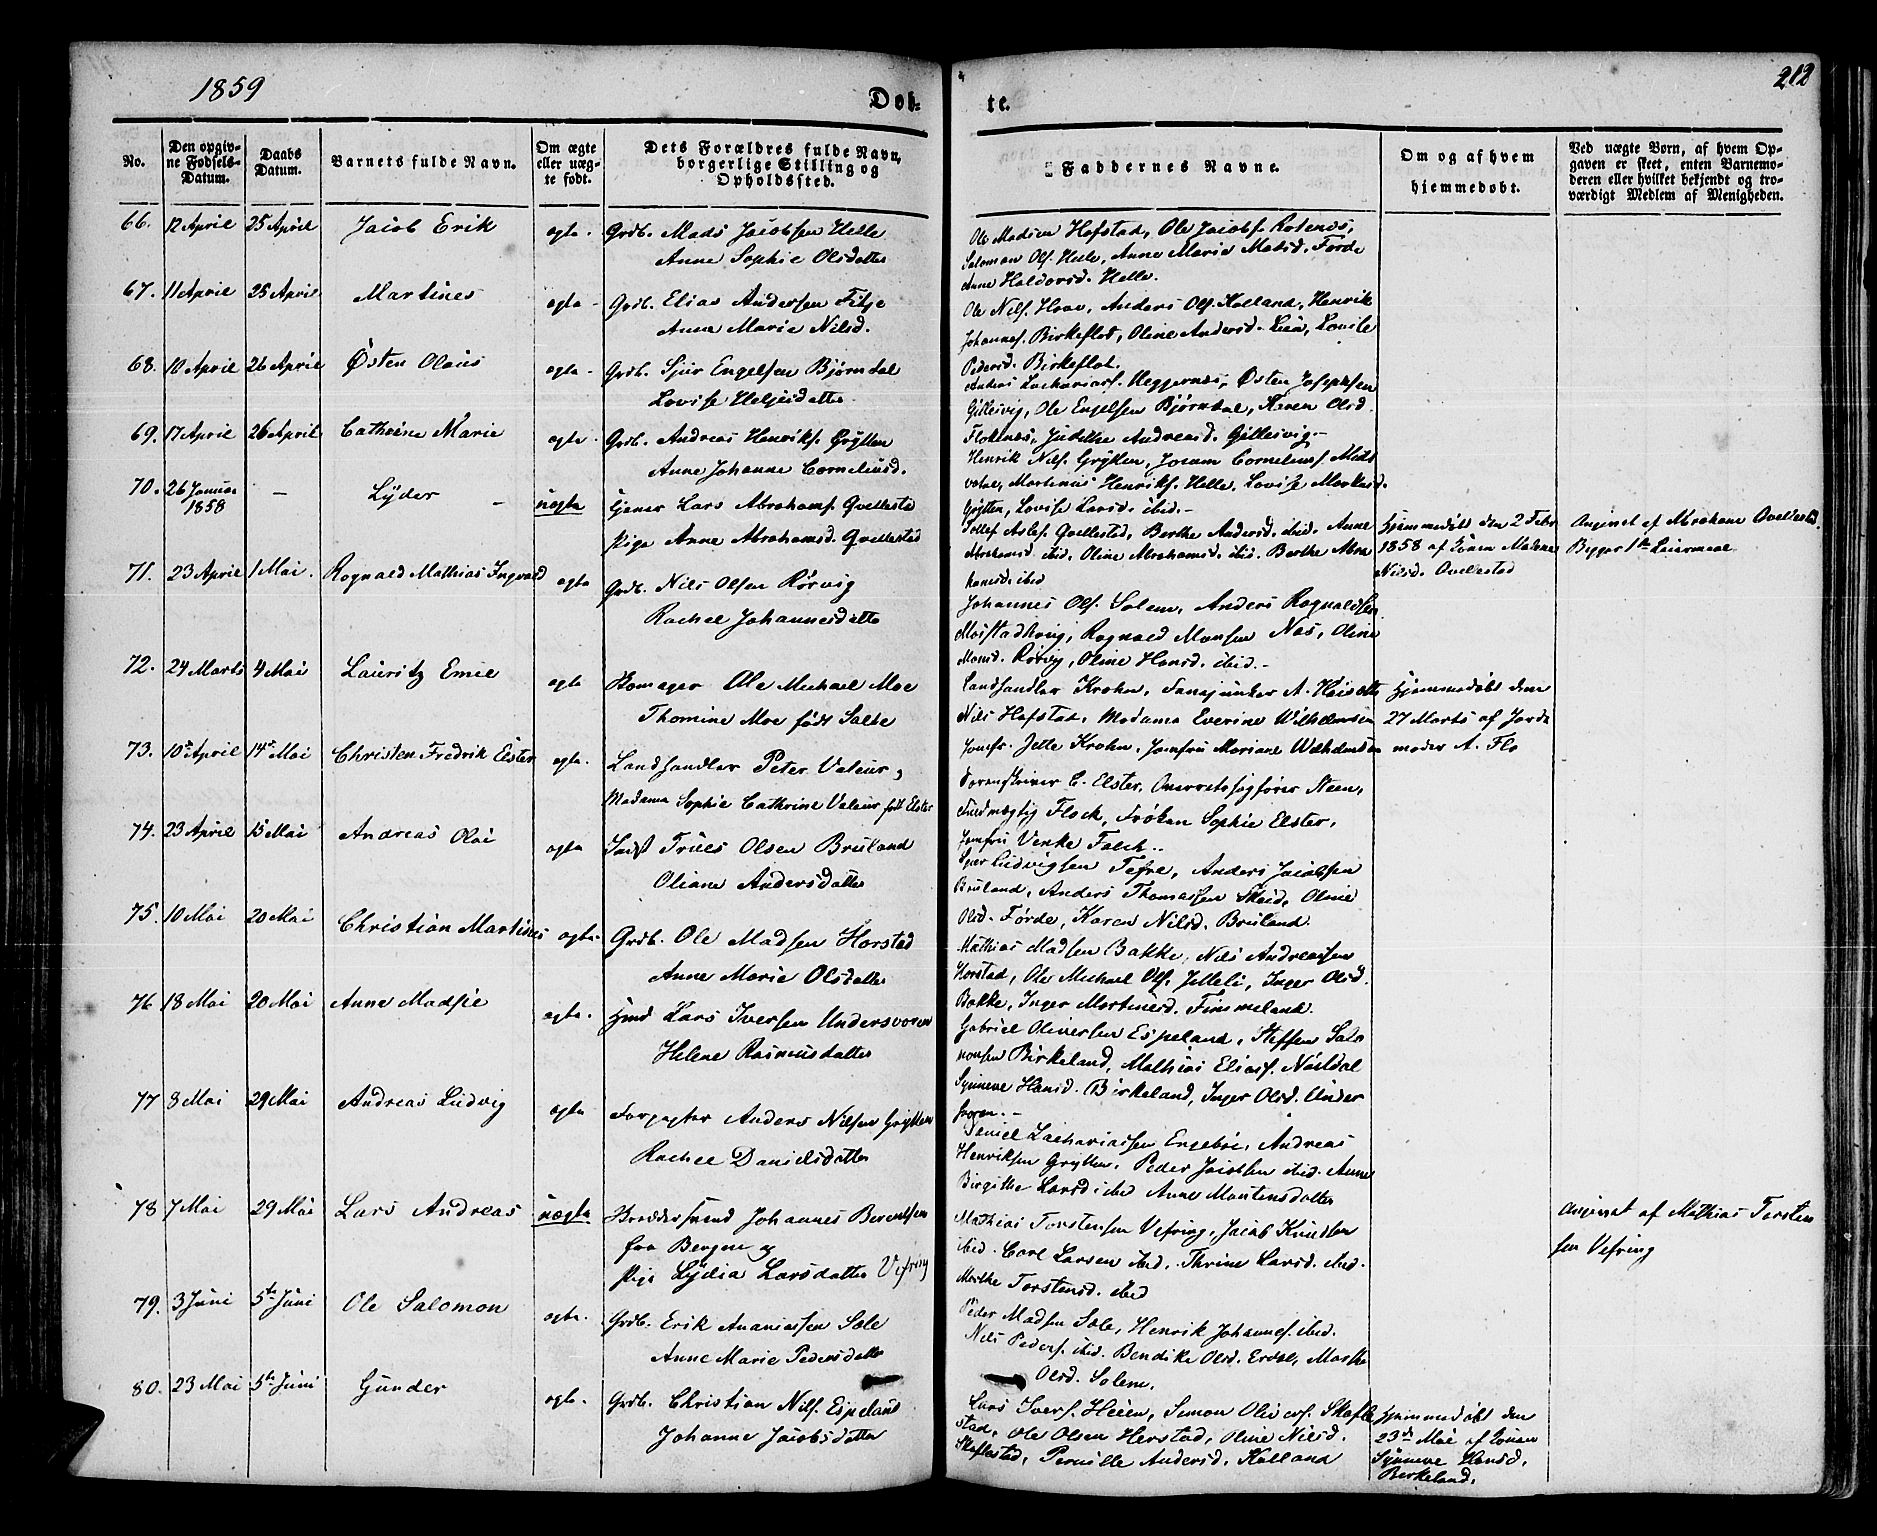 1859
Døb-
te.
212
No.
Den opgiv-
ne Fødsels-
Datum.
Daabs
Datum.
Barnets fulde Navn.
Om ægte
eller uæg-
te født.
Dets Forældres fulde Navn,
borgerlige Stilling og
Opholdssted.
Faddernes Navne.
Om og af hvem
hjemmedøbt.
Ved uægte Børn, af hvem Op-
gaven er skeet, enten Barnemo-
deren eller hvilket bekjendt og tro-
værdigt Medlem af Menigheden.
66. 12 April 25 April Jacob Erik ægte. Grdb. Mads Jacobsen Helle
Anne Sophie Olsdatter
Ole Madsen Hafstad, Ole Jacobs. Rotenes,
Salomon Ols. Helle, Anne Marie Madsd. Førde
Anne Haldorsd. Helle.
67. 11 April 25 April Martines ægte - Grdb. Elias Andersen Fitje
Anne Marie Nilsd.
Ole Nils. Hove, Anders Ols. Kalland, Henrik
Johannes. Birkeflot, Oline Andersd. Lien, Lovise
Pedersd. Birkeflot.
68. 10 April 26 April Østen Olaus ægte - Grdb. Sjur Engelsen Bjørndal
Lovise Heljesdatter
Andreas Zachariass. Heggernes, Østen Josephsen
Gillesvig, Ole Engelsen Bjørndal, Karen Olsd.
Flokenes, Judithe Andreasd. Gillesvig -
69. 17 April 26 April Cathrine Marie ægte - Grdb. Andreas Henriks. Grytten
Anne Johanne Corneliusd.
Henrik Nils. Grytten, Joram Cornelius. Mids
vatne, Martinus Henriks. Helle, Lovise Markusd.
Grytten, Lovise Larsd. ibid. -
70. 26 Januar
1858 - Lyder - uægte Tjener Lars Abrahams. Qvellestad
Pige Anne Abrahamsd. Qvellestad
Tollef Aslef. Qvellestad, Berthe Andersd. ibid. Anne
Abrahamsd. ibid, Oline Abrahamsd. ibid. Berthe Abra
hamsd. ibid
Hjemmedøbt den 2 Febr
1858 af Konen Madame
Nilsd. Qvellestad
Angivet af Abraham Qvellestad
Begges 1ste Leiermaal
71. 23 April 1 Mai. Rognald Mathias Ingvald ægte Grdb. Nils Olsen Rørvig
Rachel Johannesdatter
Johannes Ols. Solem, Anders Rognaldsen
Mostadhoug, Rognald Monsen Nas, Oline
Monsd. Rørvig, Oline Hansd. ibid. -
72. 24 Marts 4 Mai Lauritz Emil ægte Skomager Ole Michael Moe
Thomine Moe født Salbe
Landhandler Krohn, Fanejunker A.
Nils Hafstad, Madame Everine Wilhelmsen
Jomfr. Jette Krohn, Jomfru Mariane Wilhelmsen
Hjemmedøbt den
27 Marts af Jorde
moder A. Flo
73. 10de April 14de Mai Christen Fredrik Elster ægte. Landhandler Peter Valeur,
Madame Sophie Cathrine Valeur født Elster
Sorenskriver C. Elster, Overretssagfører Steen,
Fuldmægtig Flock, Frøken Sophie Elster,
Jomfru Venke Falch.
74. 23 April 15 Mai Andreas Olai ægte Inds Truls Olsen Bruland
Oliane Andersdatter
Sjur Ludvigsen Tefre, Anders Jacobsen
Bruland, Anders Thomassen Skeid, Oline
Olsd. Førde, Karen Nilsd. Bruland.
75. 10 Mai 20 Mai Christian Martines ægte. Grdb. Ole Madsen Horstad
Anne Marie Olsdatter
Mathias Madsen Bakke, Nils Andreassen
Horstad, Ole Michael Ols. Jelleli, Inger Olsd.
Bakke, Inger Martinusd. Fimmeland.
76 18 Mai 20 Mai Anne Madsie ægte. Hmd Lars Iversen Undersvoren
Helene Rasmusdatter
Gabriel Oliversen Espeland, Steffen Salo
monsen Birkeland, Mathias Elias. Naustdal
Synneve Hansd. Birkeland, Inger Olsd. Under
svoren. -
77 8 Mai 29 Mai Andreas Ludvig ægte Forpagter Anders Nilsen Grytten
Rachel Danielsdatter
Daniel Zachariassen Engebøe, Andreas
Henriksen Grytten, Peder Jacobsen ibid. Anne
Birgithe Larsd. ibid Anne Mortensdatter
78 7 Mai 29 Mai Lars Andreas uægte Johannes Berentsen
fra Bergen og
Pige Lydia Larsdatter Vefring
Mathias Torstensen Vefring, Jacob Knudsen
ibid. Carl Larsen ibid. Thrine Larsd. ibid.
Marthe Torstensd. ibid
Angivet af Mathias Torsten
sen Vefring
79. 3 Juni 5te Juni Ole Salomon ægte. Grdb. Erik Ananiassen Sole
Anne Marie Pedersdatter
Peder Madsen Sole, Henrik Johannes. ibid.
Nils Peders. ibid. Bendike Olsd. Erdal, Marthe
Olsd. Solem.
80. 23 Mai 5te Juni Gunder ægte. Grdb. Christian Nils. Espeland
Johanne Jacobsdatter
Lars Ivers. Heien, Simon Olivers. Skafle
stad, Ole Olsen Herstad, Oline Nilsd.
Skaflestad, Pernille Andersd. Kalland
Hjemmedøbt den
23de Mai af Konen
Synneve Hansd.
Birkeland.